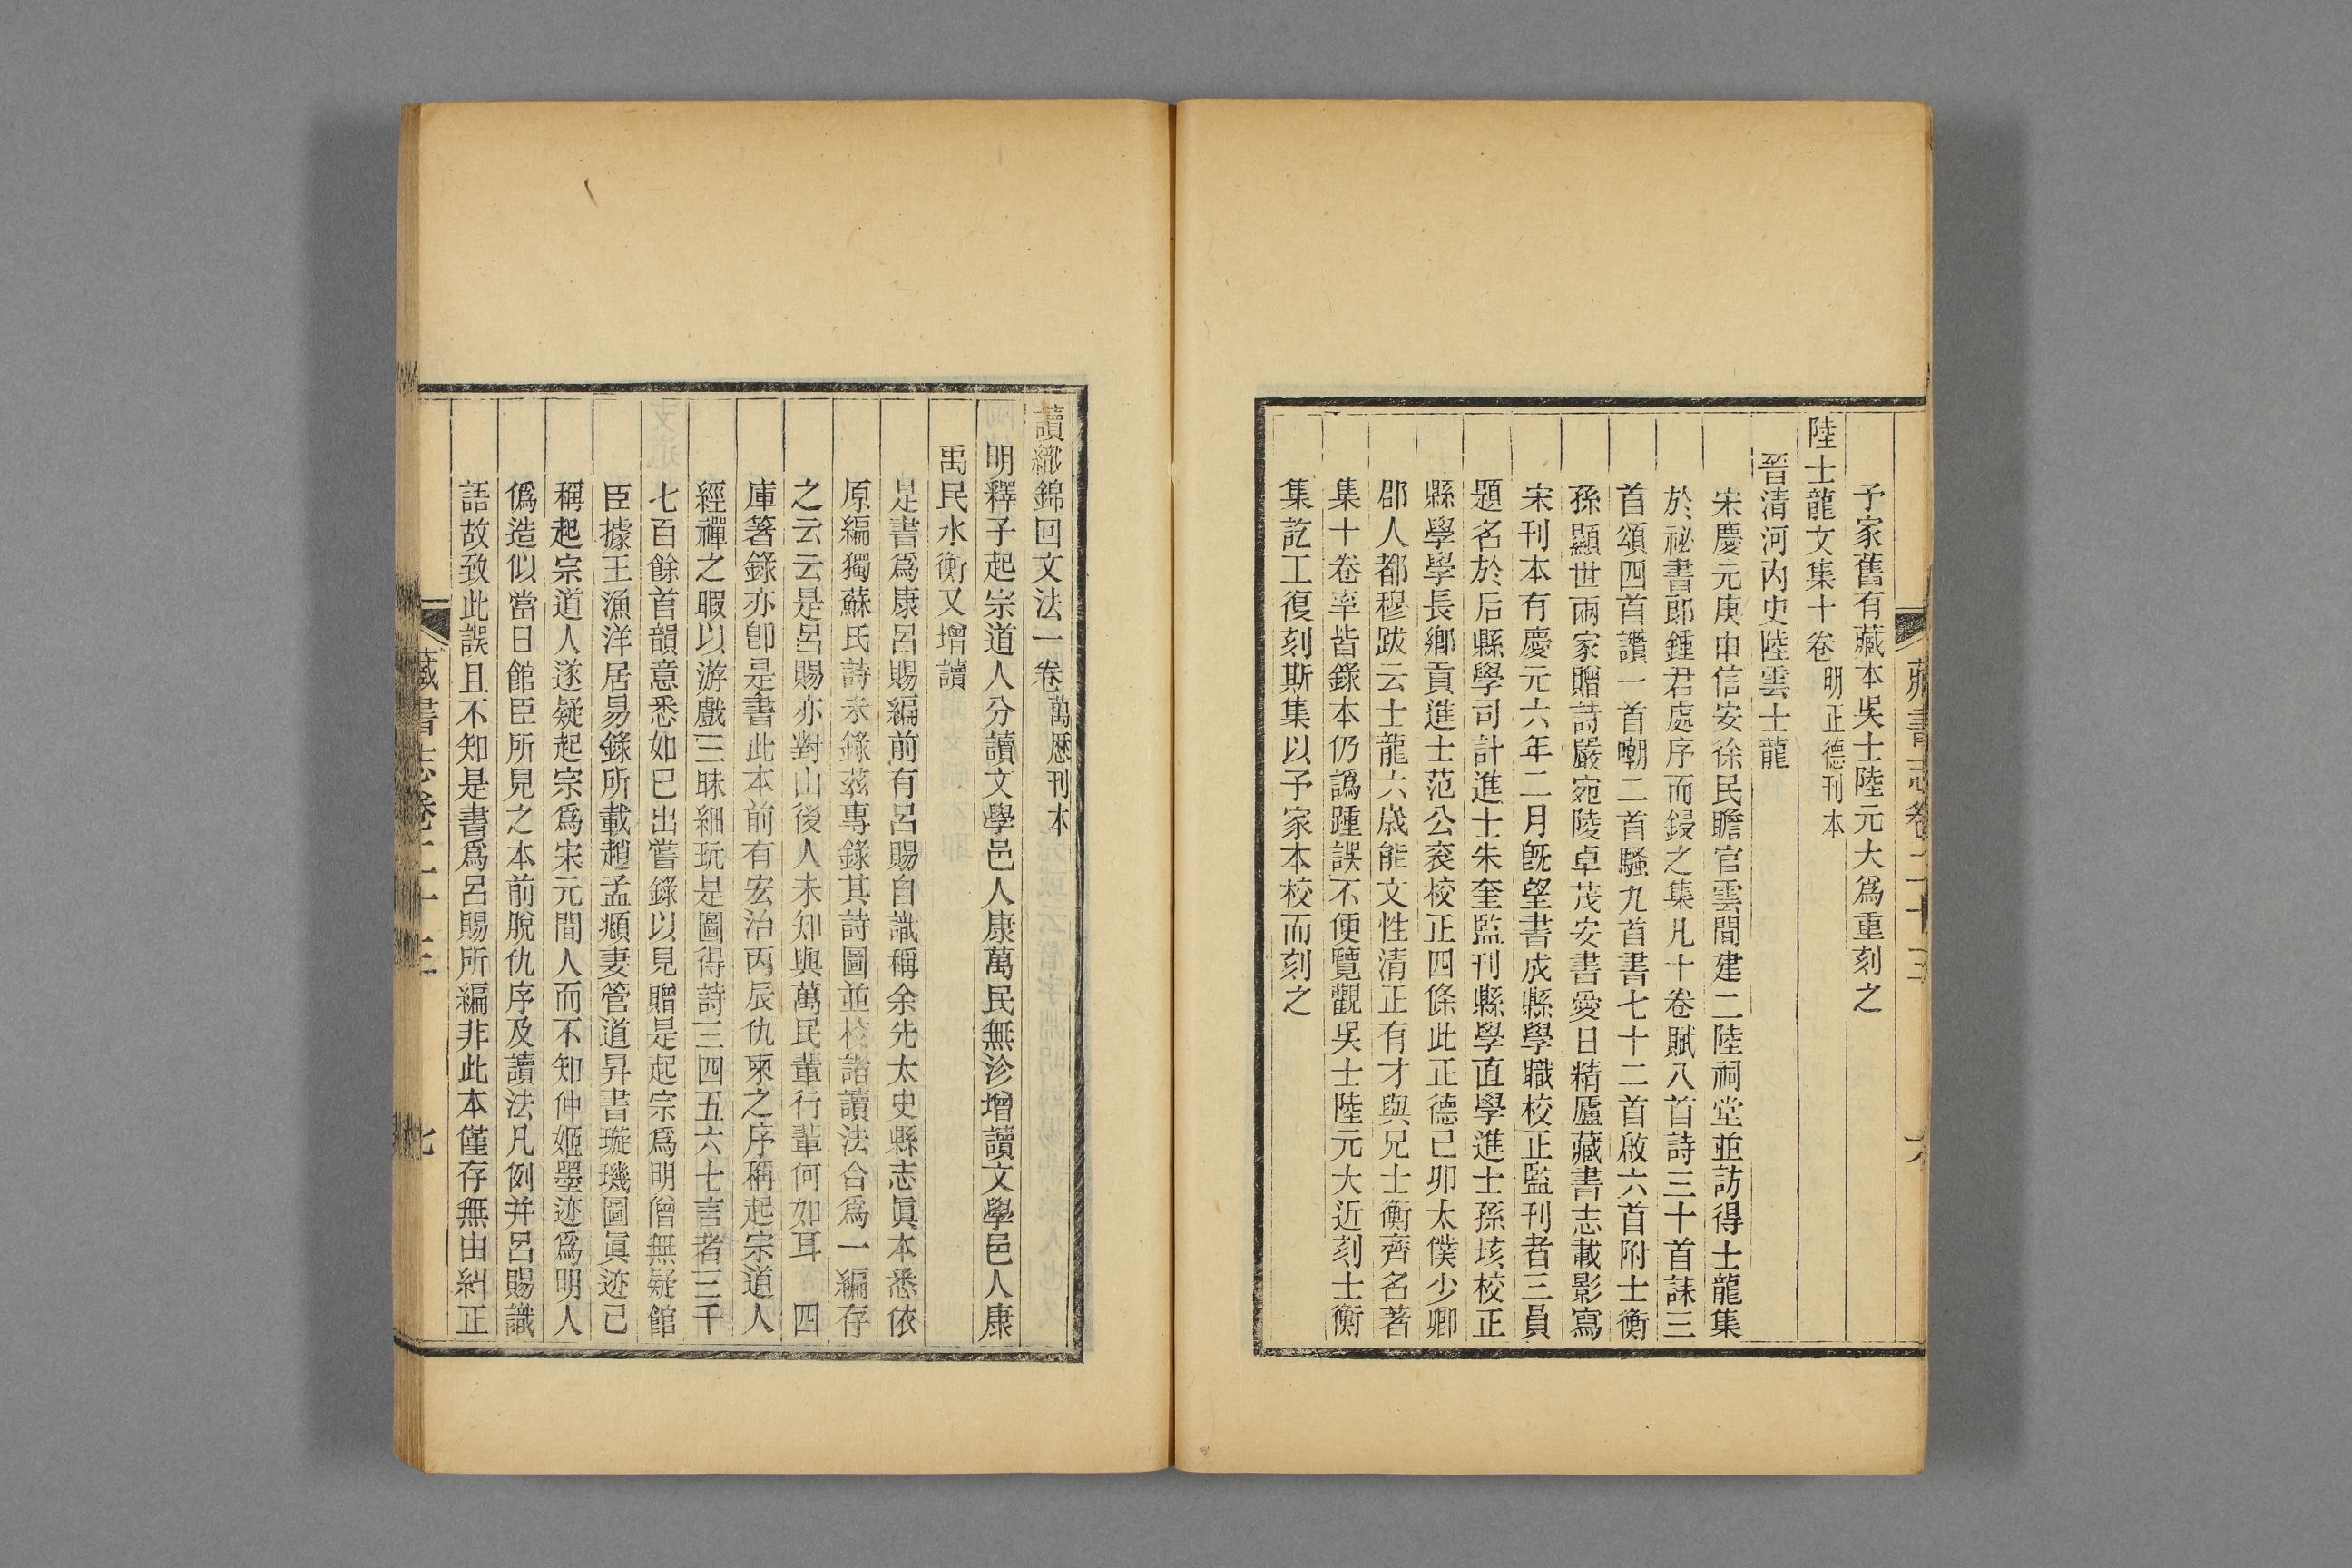 予家舊有藏本吳士陸元大爲重刻之
陸士龍文集十卷 明正德刊本
晉清河內史陸雲士龍
宋慶元庚申信安徐民瞻官雲間建二陸祠堂並訪得士龍集
於祕書郎鍾君處序而鋟之集凡十卷賦八首詩三十首誄三
首頌四首讚一首嘲二首騷九首書七十二首啟六首附士衡
孫顯世兩家贈詩嚴宛陵卓茂安書愛日精廬藏書志載影寫
宋刊本有慶元六年二月旣望書成縣學職校正監刊者三員
題名於后縣學司計進士朱奎監刊縣學直學進士孫垓校正
縣學學長鄉貢進士范公袞校正四條此正德己卯太僕少卿
郡人都穆跋云士龍六歲能文性清正有才與兄士衡齊名著
集十卷率皆錄本仍譌踵誤不便覽觀吳士陸元大近刻士衡
集訖工復刻斯集以予家本校而刻之
藏書志卷二十三 六
讀織錦回文法一卷 萬歷刊本
明釋子起宗道人分讀文學邑人康萬民無沴增讀文學邑人康
禹民水衡又增讀
是書爲康呂賜編前有呂賜自識稱余先太史縣志眞本悉依
原編獨蘇氏詩未錄茲專錄其詩圖並校諸讀法合爲一編存
之云云是呂賜亦對山後人未知與萬民輩行輩何如耳 四
庫箸錄亦卽是書此本前有宏治丙辰仇東之序稱起宗道人
經禪之暇以游戲三昧細玩是圖得詩三四五六七言者三千
七百餘首韻意悉如已出嘗錄以見贈是起宗爲明僧無疑館
臣據王漁洋居易錄所載趙孟頫妻管道昇書璇璣圖眞迹已
稱起宗道人遂疑起宗爲宋元間人而不知仲姬墨迹爲明人
僞造似當日館臣所見之本前脫仇序及讀法凡例并呂賜識
語故致此誤且不知是書爲呂賜所編非此本僅存無由糾正
藏書志卷二十三 七